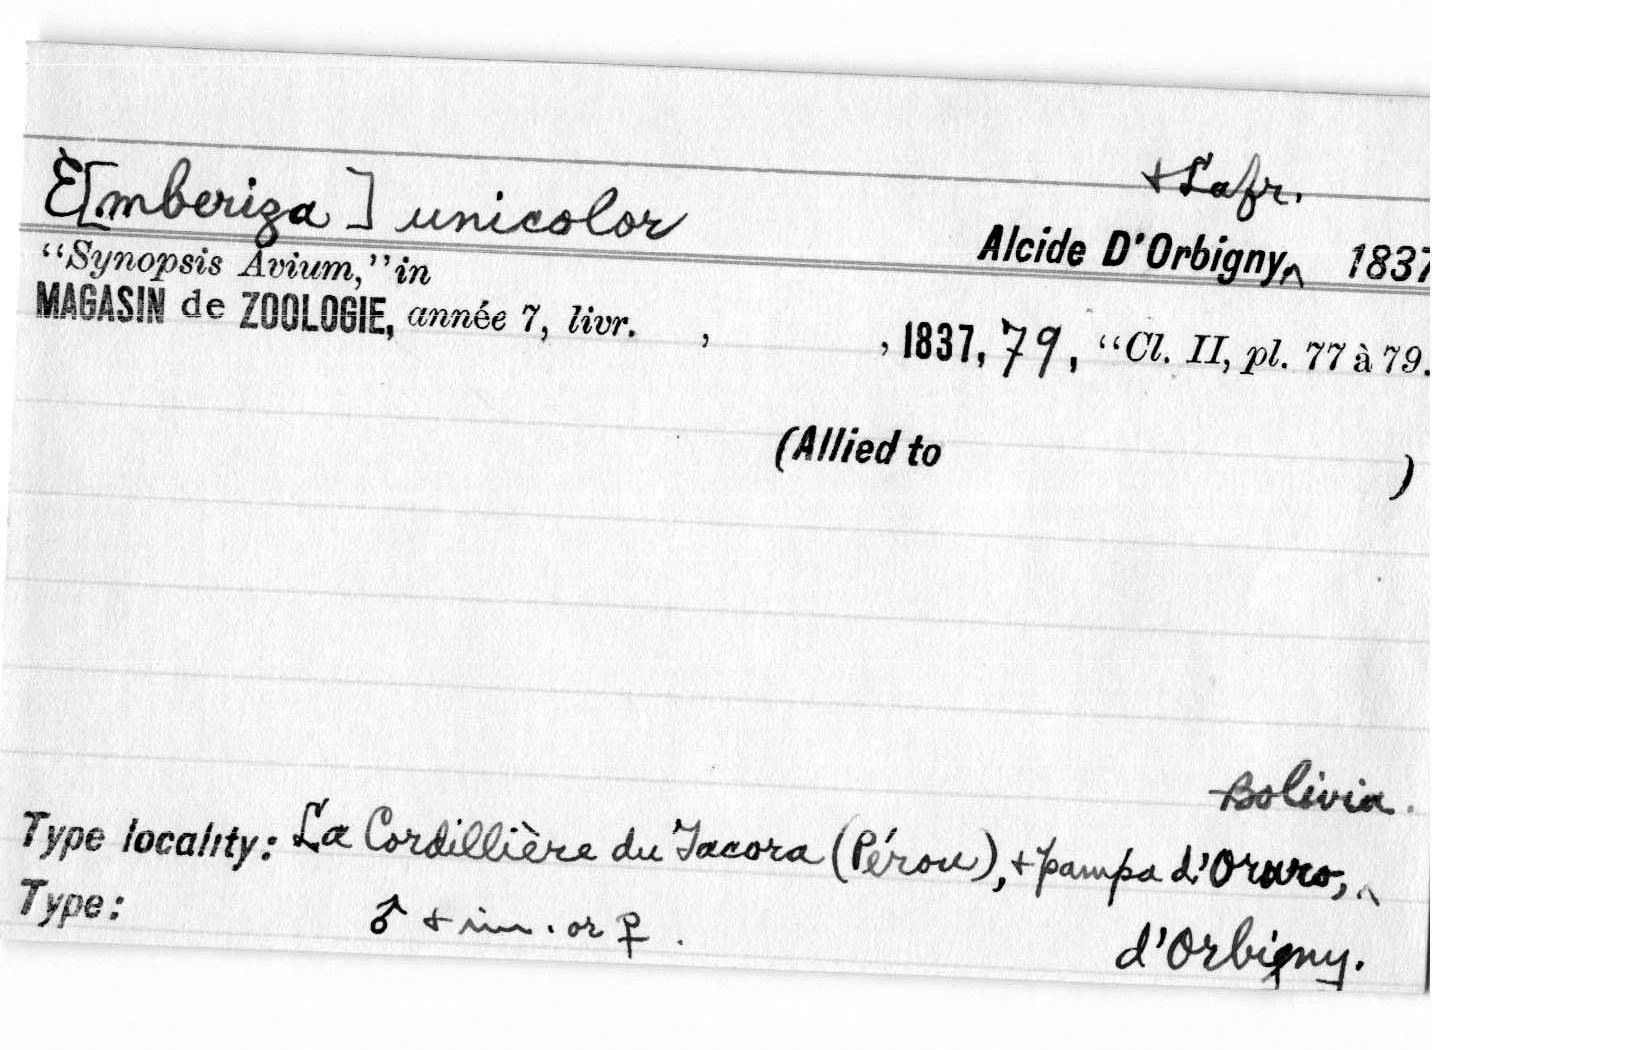 E[mberiza] unicolor
+ Lafr.
Alcide D'Orbigny^ 1837
"Synopsis Avium," in
MAGASIN de ZOOLOGIE, année 7, livr. , , 1837, 79, "Cl. II, pl. 77 à 79.
(Allied to )
Bolivia.
Type locality: La Cordillière du Tacora (Pérou), + pampa d'Oruro, ^
Type: ♂ + im. or ♀. d'Orbigny.